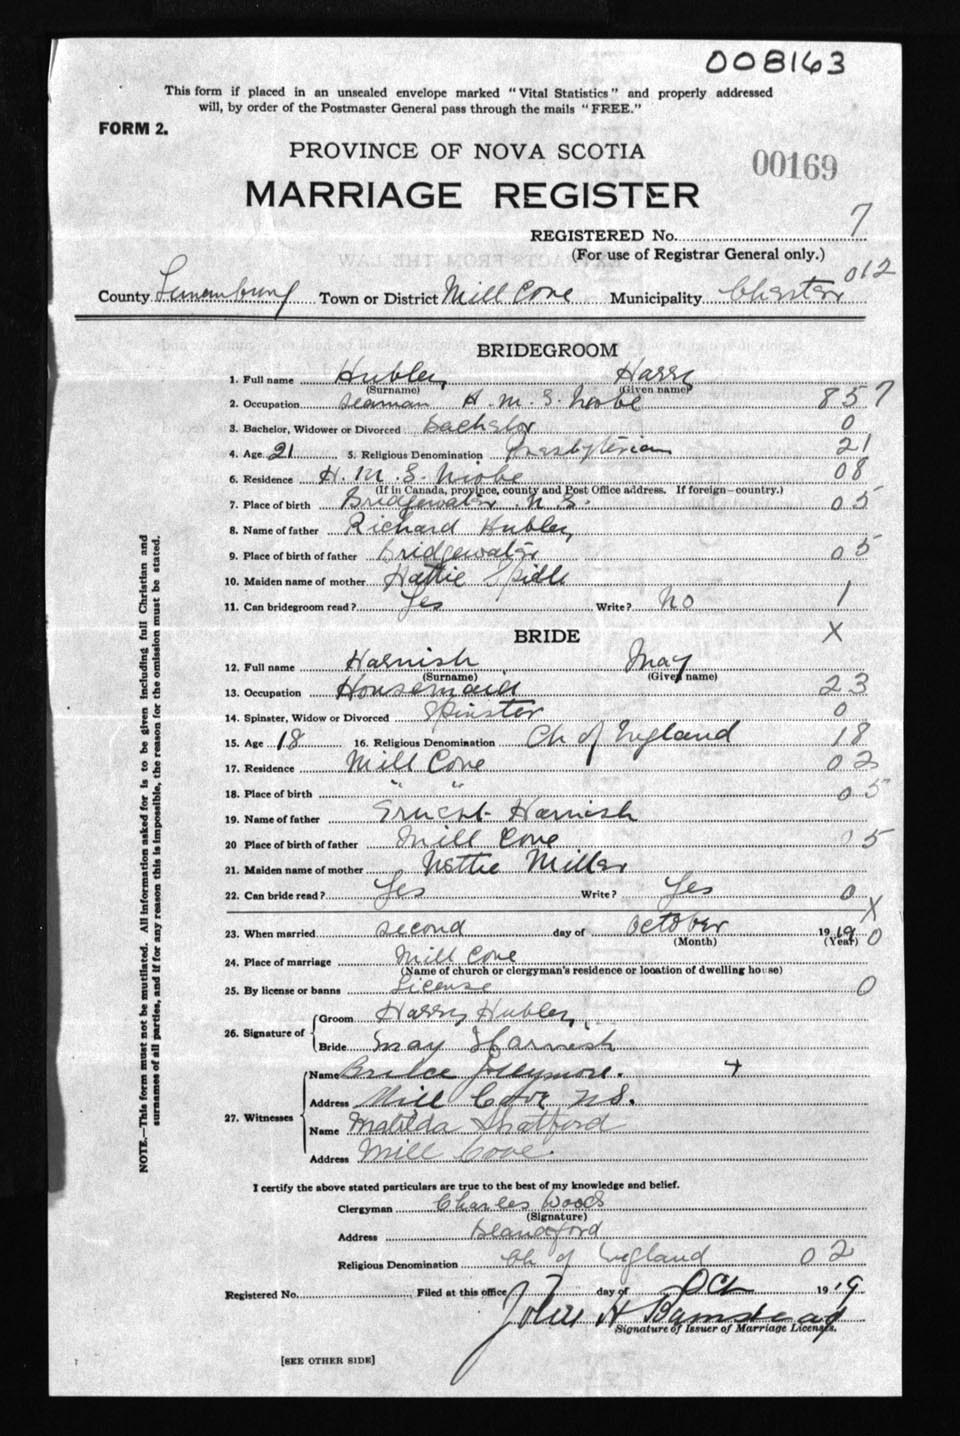 008163
This form if placed in an unsealed envelope marked "Vital Statistics" and properly addressed
will, by order of the Postmaster General pass through the mails "FREE."
FORM 2.
PROVINCE OF NOVA SCOTIA
00169
MARRIAGE REGISTER
REGISTERED No. 7
(For use of Registrar General only.)
012
County Lunenburg Town or District Mill Cove Municipality Chester
BRIDEGROOM
1. Full name Hubley Harry
(Surname) (Given name)
2. Occupation Seaman H.M.S. Niobe 857
3. Bachelor, Widower or Divorced Bachelor 0
4. Age 21 5. Religious Denomination Presbyterian 21
6. Residence H.M.S. Niobe 08
(If in Canada, province, county and Post Office address. If foreign—country.)
7. Place of birth Bridgewater N.S. 05
8. Name of father Richard Hubley
9. Place of birth of father Bridgewater 05
10. Maiden name of mother Hattie Spidle
11. Can bridegroom read? Yes Write? No 1
BRIDE X
12. Full name Harnish May
(Surname) (Given name)
13. Occupation Housemaid 23
14. Spinster, Widow or Divorced Spinster 0
15. Age 18 16. Religious Denomination Ch of England 18
17. Residence Mill Cove 02
18. Place of birth " " 05
19. Name of father Ernest Harnish
20 Place of birth of father Mill Cove 05
21. Maiden name of mother Nettie Miller
22. Can bride read? Yes Write? Yes 0
X
23. When married second day of October 1919 0
(Month) (Year)
24. Place of marriage Mill Cove
(Name of church or clergyman's residence or location of dwelling house)
25. By license or banns License 0
26. Signature of Groom Harry Hubley
Bride May Harnish
27. Witnesses Name Jollymore. +
Address Mill Cove NS.
Name Matilda Shatford
Address Mill Cove.
I certify the above stated particulars are true to the best of my knowledge and belief.
Clergyman Charles Wood
(Signature)
Address Blandford
Religious Denomination Ch of England 02
Registered No. Filed at this office day of Oct 1919
H
Signature of Issuer of Marriage Licenses.
[SEE OTHER SIDE]
NOTE.—This form must not be mutilated. All information asked for is to be given including full Christian and
surnames of all parties, and if for any reason this is impossible, the reason for the omission must be stated.